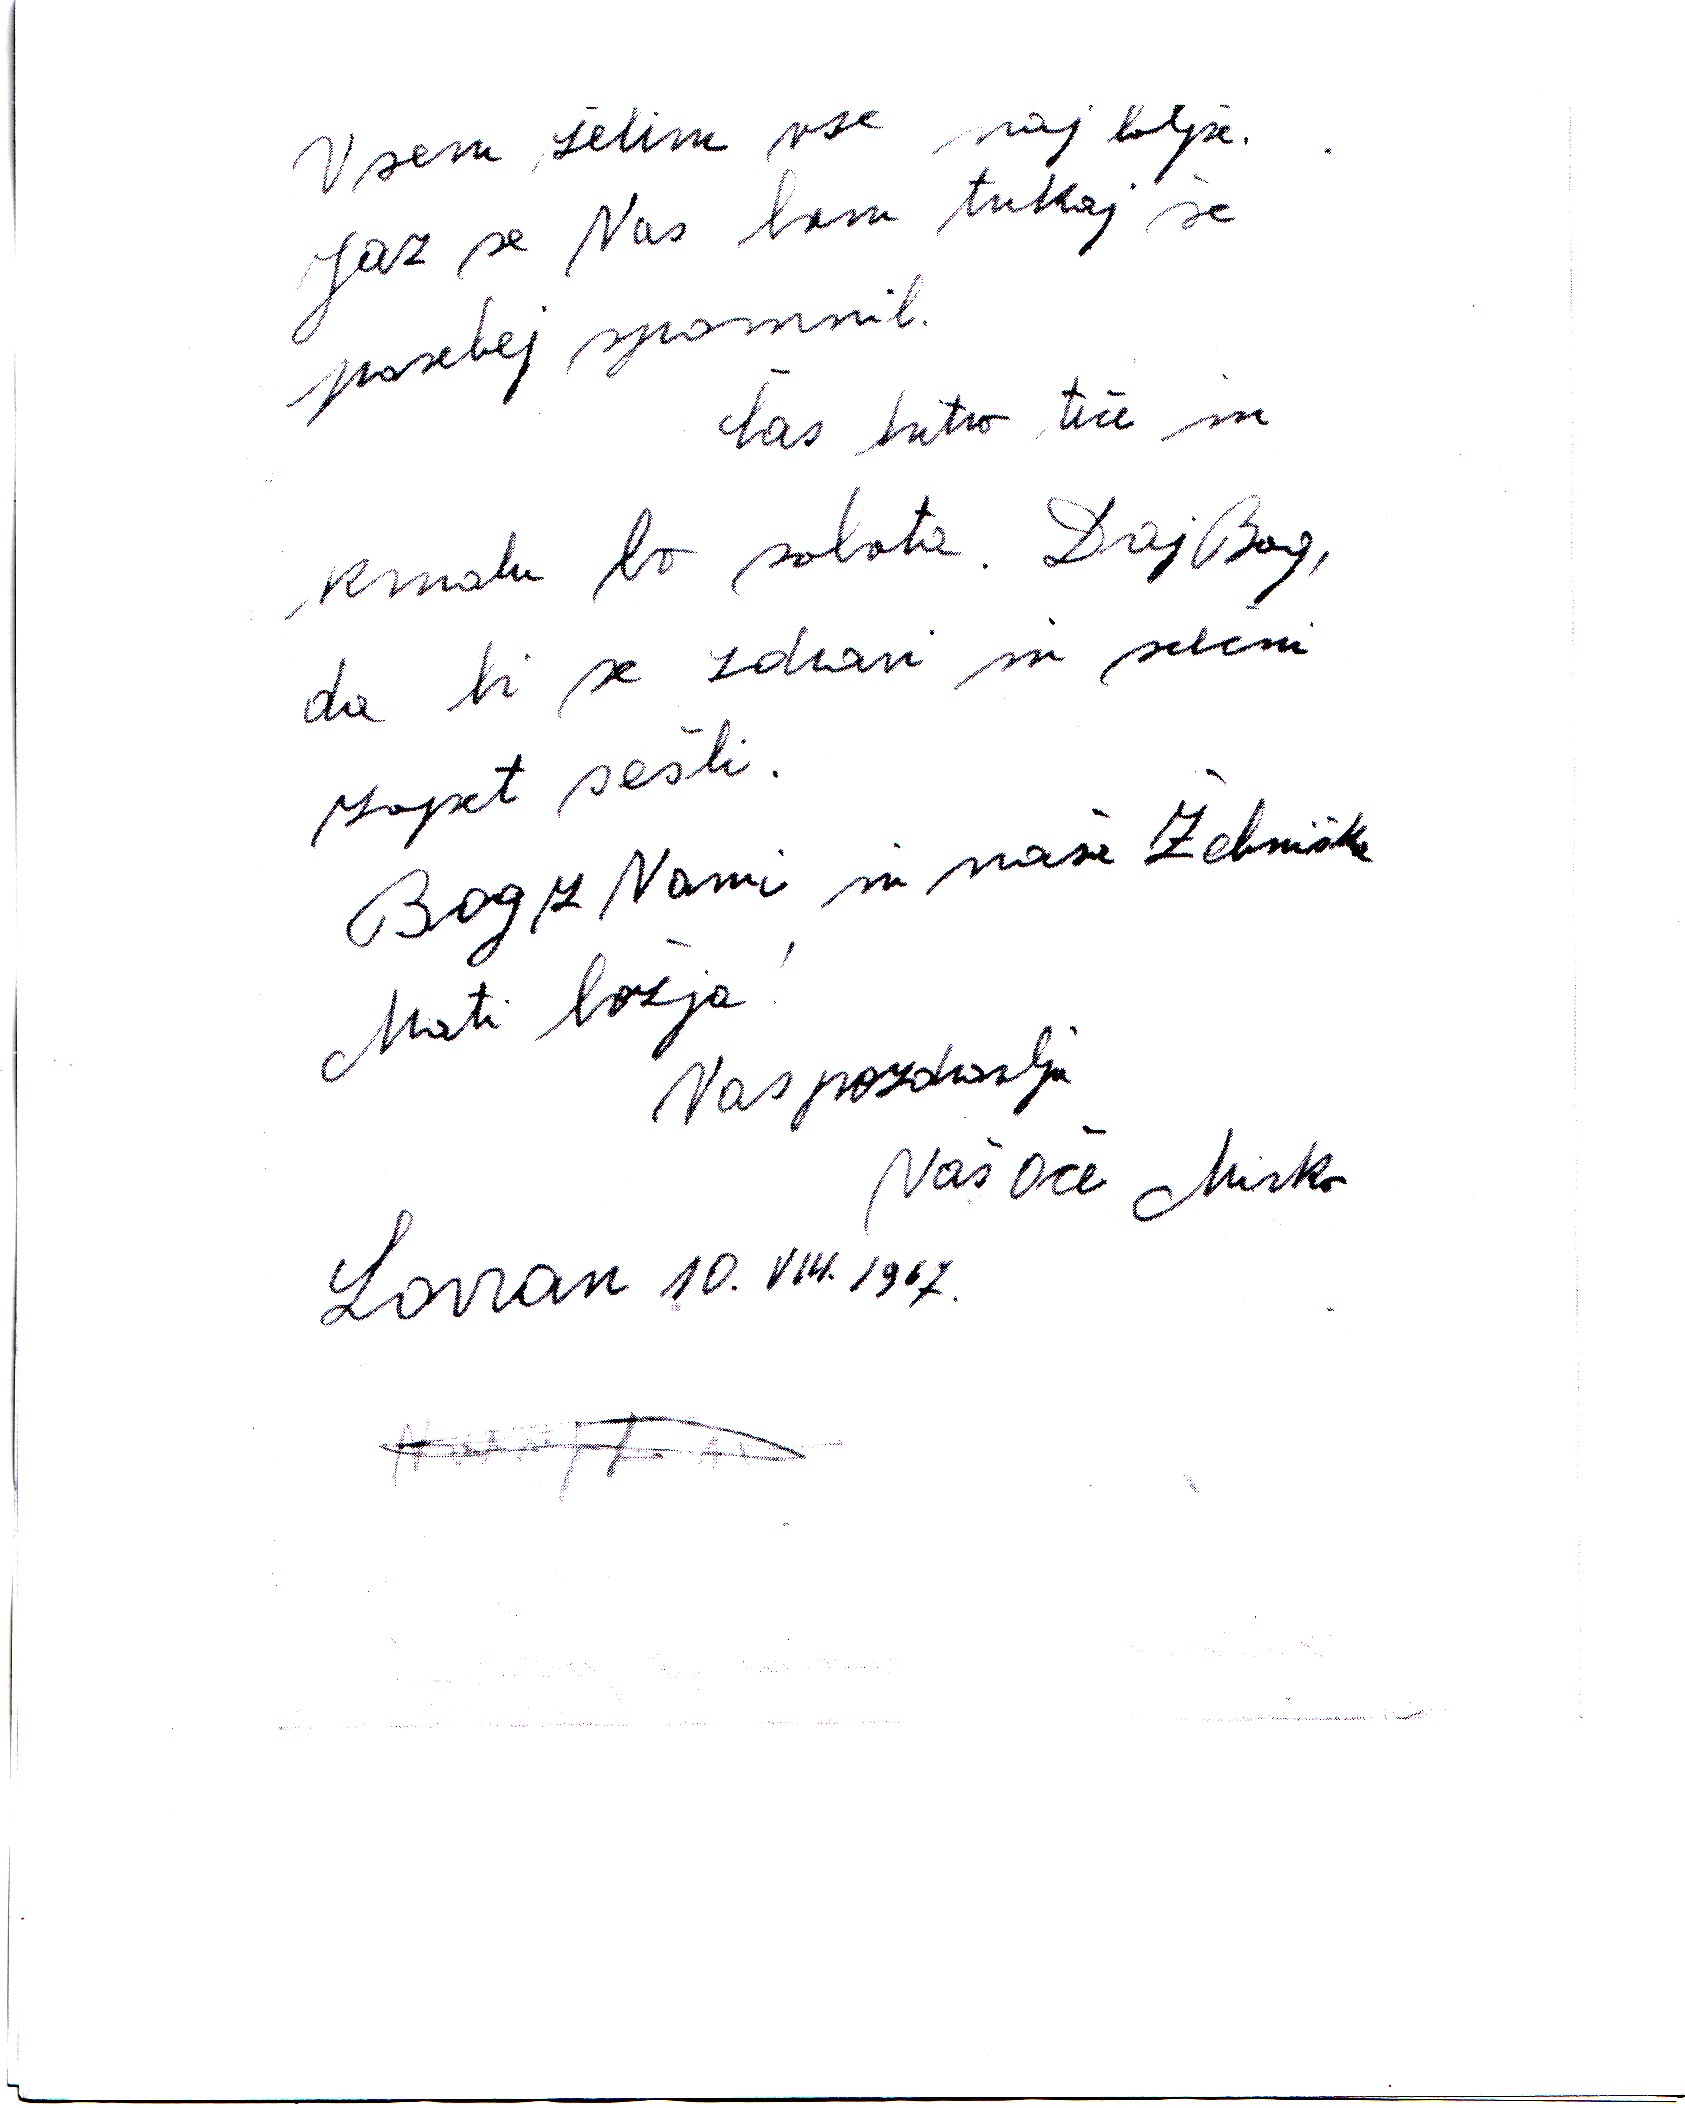 Vsem želim vse naj bolje.
Jaz se Vas bom tukaj še
posebej spomnil.
Čas hitro teče in
kmalu bo sobota. Daj Bog,
da bi se zdravi in srečni
zopet sešli.
Bog z Vami in naša Žebniška
Mati božja!
Vas pozdravlja
Vaš Oče Mirko
Lovran 10. VIII. 1967.